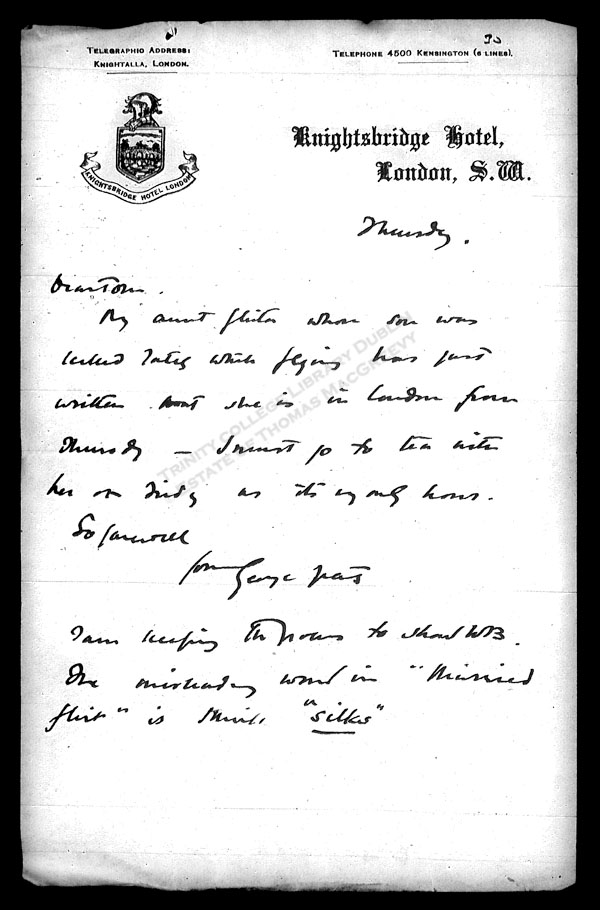 30
TELEGRAPHIC ADDRESS:
KNIGHTALLA, LONDON.
TELEPHONE 4500 KENSINGTON (6 LINES).
KNIGHTSBRIDGE HOTEL LONDON
Knightsbridge Hotel,
London, S.W.
Thursday.
Dear Tom.
My aunt whose son was
killed lately while flying has just
written that she is in London from
Thursday — I must go to tea with
her on Friday as its my only hour.
So farewell
Yours George Yeats
I am keeping the poems to show WB.
The misleading word in "Married
flirt" is I think "silks"
TRINITY COLLEGE LIBRARY DUBLIN
ESTATE OF THOMAS MACGREEVY